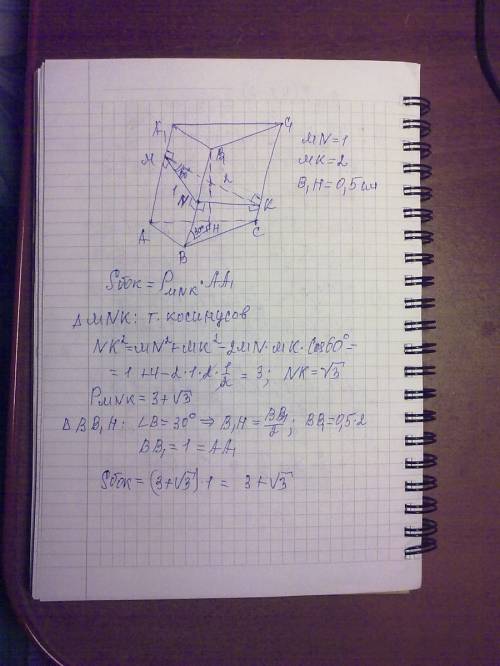 A₁
C₁
B₁
M
60°
2
1
N
K
A
30°
H
C
B
MN=1
MK=2
B₁H=0,5 см
Sбок = P_MNK · AA₁
△ MNK: т. косинусов
NK²=MN²+MK²-2MN·MK·Cos60°=
= 1+4-2·1·2·1/2 = 3; NK=√3
P_MNK = 3+√3
△ BB₁H: ∠B=30° ⇒ B₁H = BB₁/2; BB₁=0,5·2
BB₁ = 1 = AA₁
Sбок = (3+√3)·1 = 3+√3